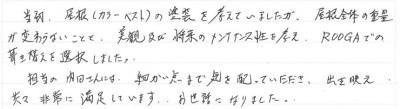 当初、屋根(カラーベスト)の塗装を考えていましたが、屋根全体の重量
が変わらないことと、美観及び将来のメンテナンス性を考え、ROOGAでの
葺き替えを選択しました。
担当の内田さんには、細かい点まで気を配っていただき、出来映え
共々非常に満足しています。お世話になりました。